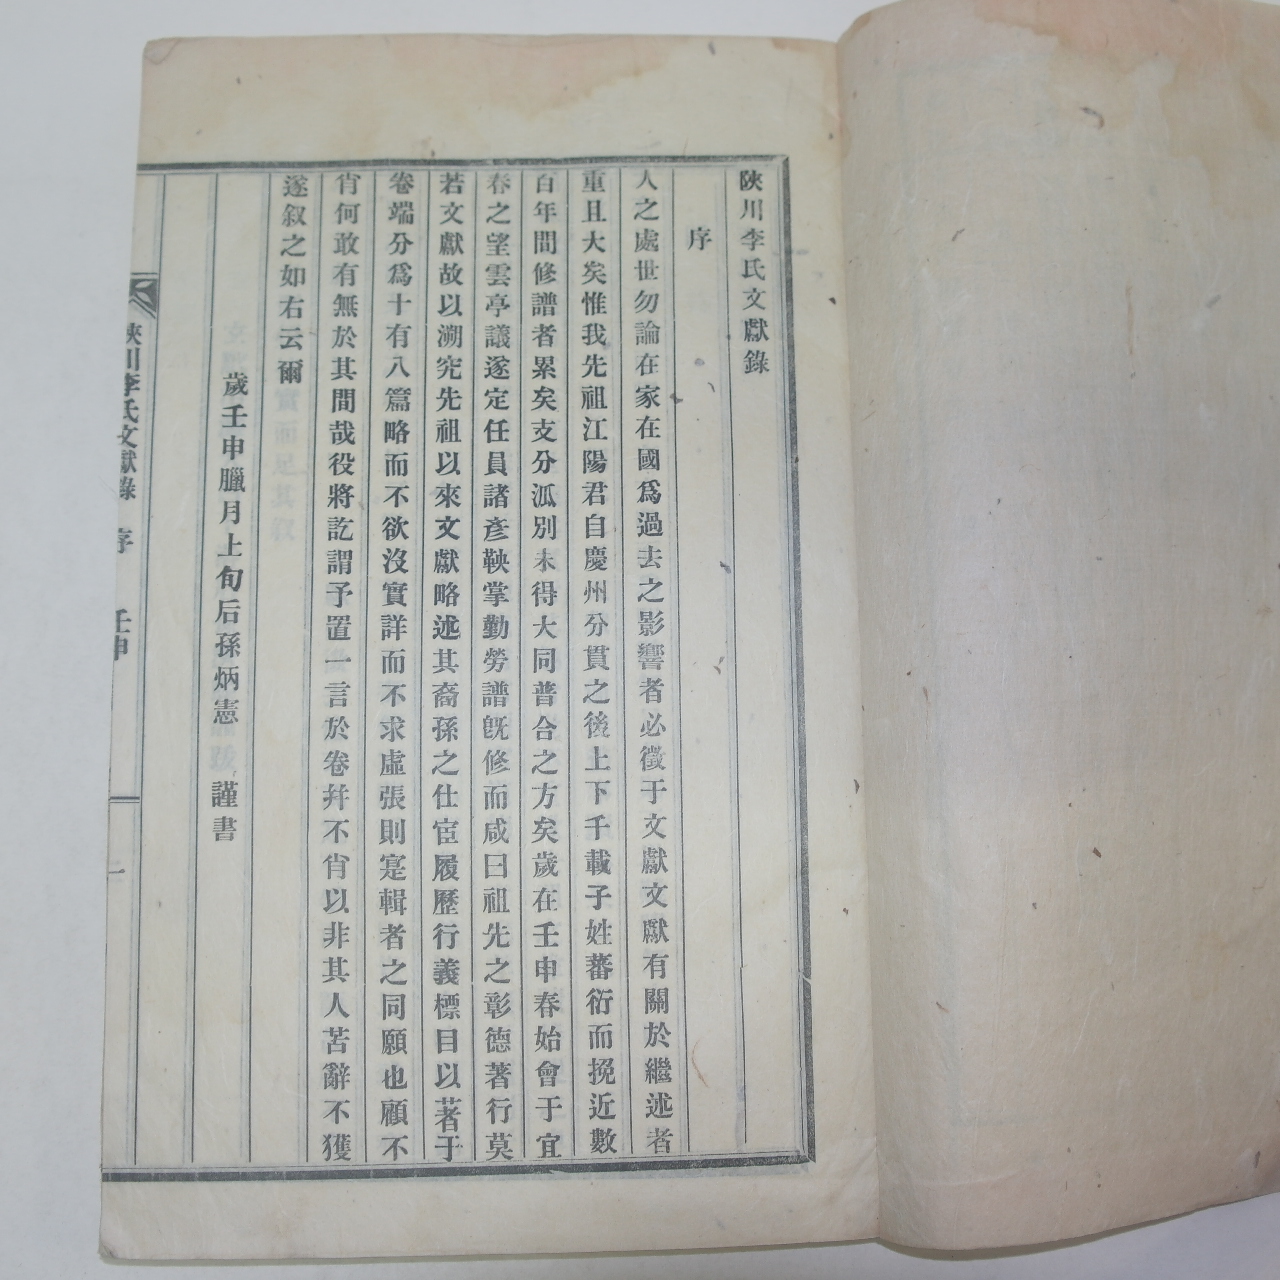 陜川李氏文獻錄
序
人之處世勿論在家在國爲過去之影響者必徵于文獻文獻有關於繼述者
重且大矣惟我先祖江陽君自慶州分貫之後上下千載子姓蕃衍而挽近數
百年間修譜者累矣支分泒別未得大同普合之方矣歲在壬申春始會于宜
春之望雲亭議遂定任員諸彥鞅掌勤勞譜旣修而咸曰祖先之彰德著行莫
若文獻故以溯究先祖以來文獻略述其裔孫之仕宦履歷行義標目以著于
卷端分爲十有八篇略而不欲沒實詳而不求虛張則寔輯者之同願也顧不
肖何敢有無於其間哉役將訖謂予置一言於卷幷不肖以非其人苦辭不獲
遂叙之如右云爾
歲壬申臘月上旬后孫炳憲謹書
陜川李氏文獻錄 序 壬申 一